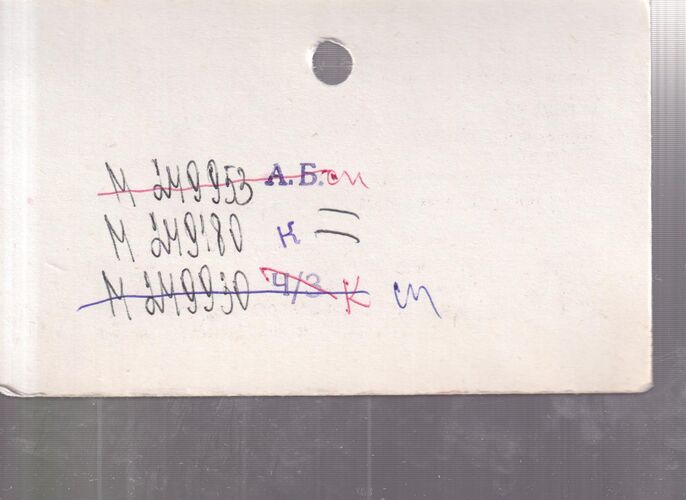 М 249953 А.Б. сп
М 249180 к =
М 249930 Ч/З К сп